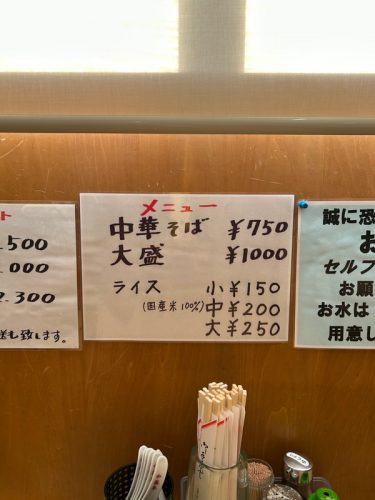 ト
500
000
2,300
送も致します。
メニュー
中華そば ¥750
大盛 ¥1000
ライス 小¥150
(国産米100%) 中¥200
大¥250
誠に恐
お
セルフ
お願
お水は
用意し